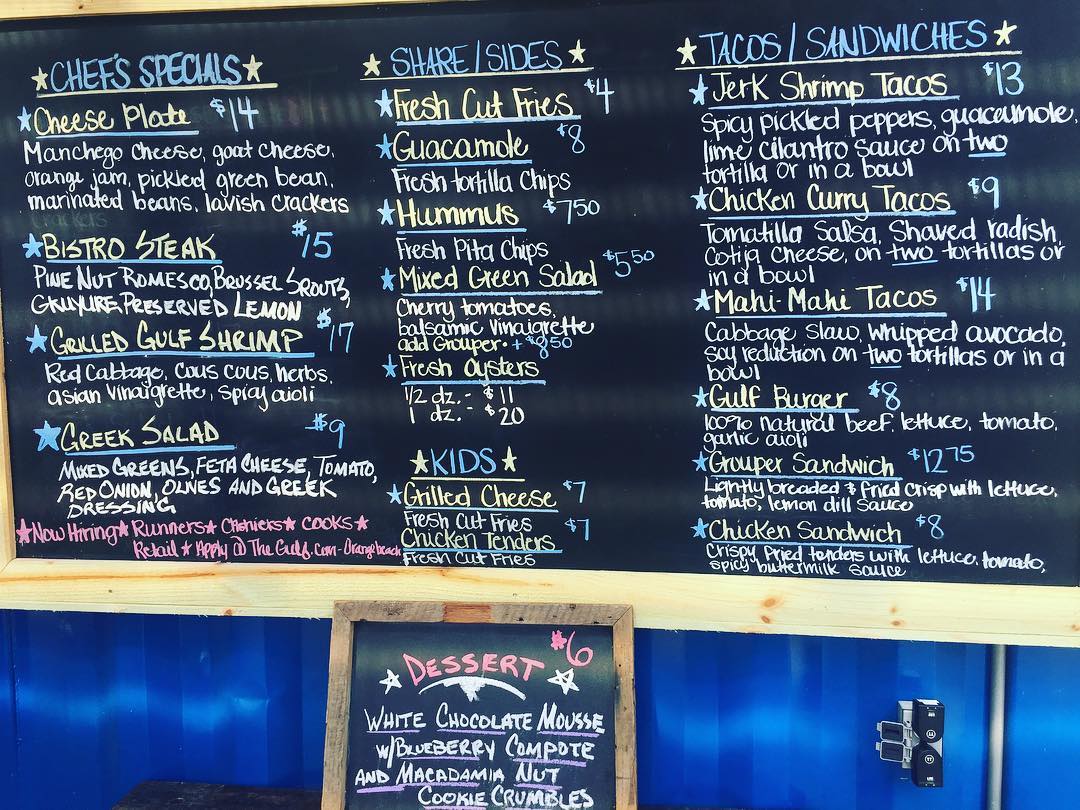 ★CHEF'S SPECIALS★
★Cheese Plate $14
Manchego cheese, goat cheese,
orange jam, pickled green bean,
marinated beans, lavish crackers
★BISTRO STEAK $15
PINE NUT ROMESCO, BRUSSEL SROUTS,
GRUYURE, PRESERVED LEMON
★GRILLED GULF SHRIMP $17
Red Cabbage, cous cous, herbs,
asian vinaigrette, spicy aioli
★GREEK SALAD $9
MIXED GREENS, FETA CHEESE, TOMATO,
RED ONION, OLIVES AND GREEK
DRESSING
★Now Hiring★ Runners★ Cashiers★ COOKS★
Retail ★ Apply @ The Gulf.com-Orangebeach
★ SHARE/SIDES ★
★Fresh Cut Fries $4
★Guacamole $8
Fresh tortilla Chips
★Hummus $7.50
Fresh Pita Chips
★Mixed Green Salad $5.50
Cherry tomatoes,
balsamic vinaigrette
add Grouper + $8.50
★Fresh Oysters
1/2 dz. - $11
1 dz. - $20
★KIDS★
★Grilled Cheese $7
Fresh Cut Fries
Chicken Tenders $7
Fresh Cut Fries
★TACOS/SANDWICHES★
★Jerk Shrimp Tacos $13
Spicy pickled peppers, guacaumole,
lime cilantro sauce on two
tortilla or in a bowl
★Chicken Curry Tacos $9
Tomatilla Salsa, Shaved radish,
Cotija cheese, on two tortillas or
in a bowl
★Mahi-Mahi Tacos $14
Cabbage slaw, whipped avocado,
soy reduction on two tortillas or in a
bowl
★Gulf Burger $8
100% natural beef, lettuce, tomato,
garlic aioli
★Grouper Sandwich $12.75
Lightly breaded & fried crisp with lettuce,
tomato, lemon dill sauce
★Chicken Sandwich $8
Crispy fried tenders with lettuce, tomato,
spicy buttermilk sauce
★DESSERT★ $6
WHITE CHOCOLATE MOUSSE
W/BLUEBERRY COMPOTE
AND MACADAMIA NUT
COOKIE CRUMBLES